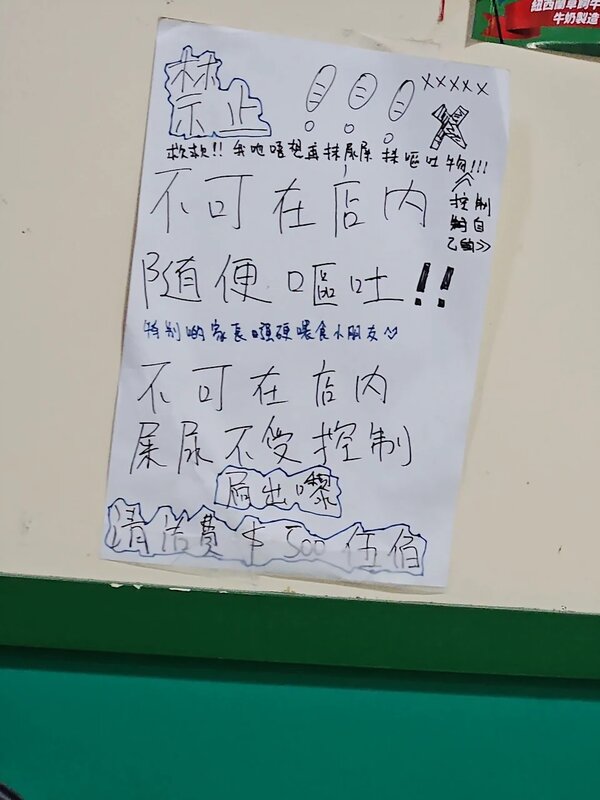 紐西蘭草飼牛
牛奶製造
禁止!!! xxxxx
求求!! 我哋唔想再抹尿屎 抹嘔吐物!!!
控制
自
己
不可在店內
隨便嘔吐!!
特別啲家長唔硬喂食小朋友
不可在店內
屎尿不受控制
屙出嚟
清洁費 $ 500 伍佰